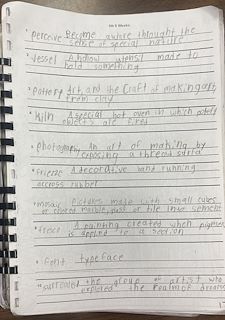 perceive Become aware throught the
sense of special nature
vessel A hollow utensil made to
hold something
pottery Art, and the Craft of making art
from clay
kiln A special hot oven in which pottery
objects are fired
photography An art of making by
exposing a
frieze A decorative band running
accross
mosaic pictures made with small cubes
of colored marble, or tile in cement
A painting created when pigment
is applied to a
font typeface
surrealist the group of artist who
explored the realm of dreams